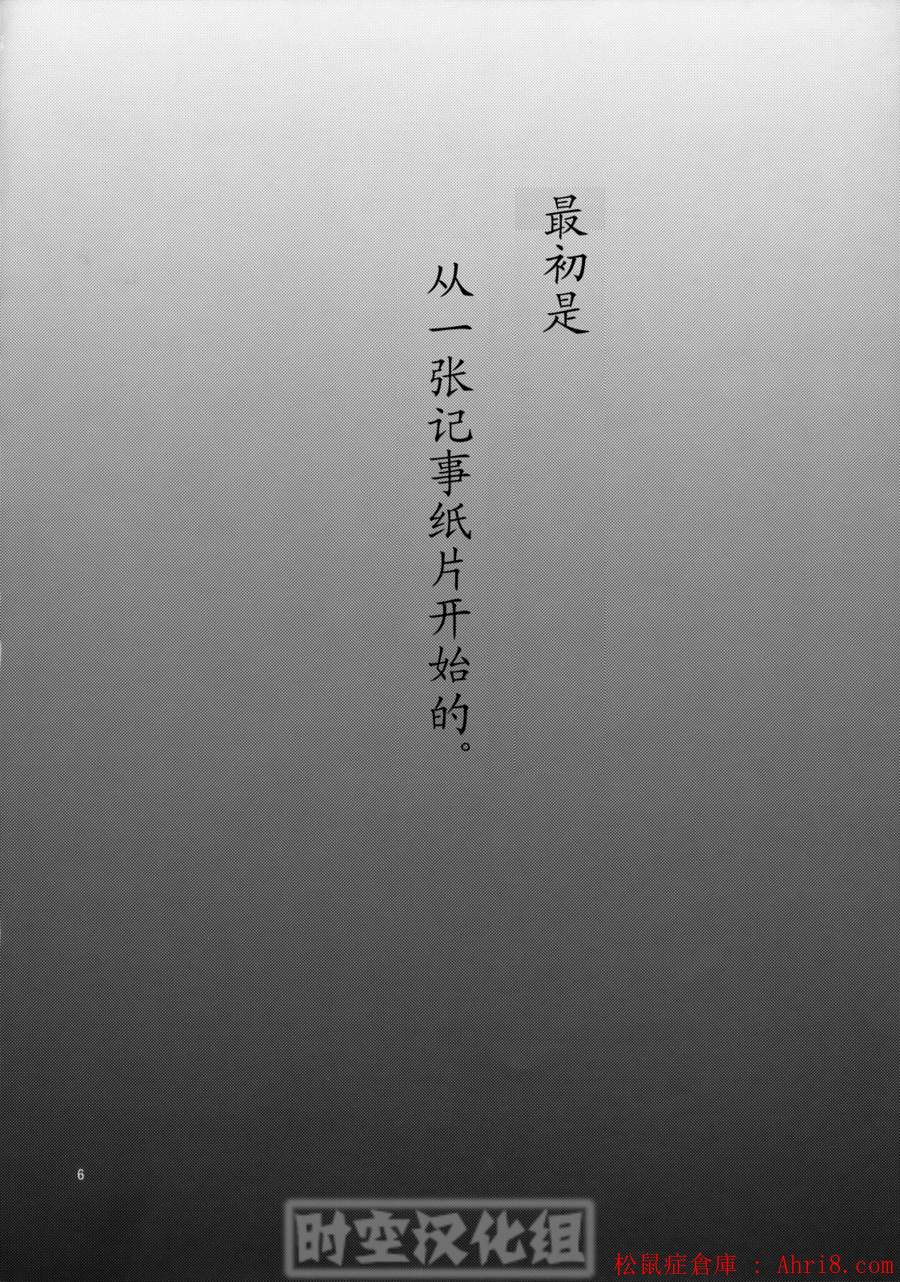 最初是
从一张记事纸片开始的。
6
时空汉化组
松鼠症倉庫 : Ahri8.com